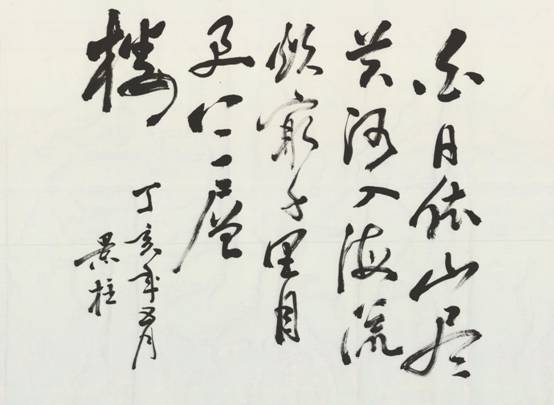 白日依山尽
黄河入海流
欲穷千里目
更上一层
楼
丁亥年五月
景柱